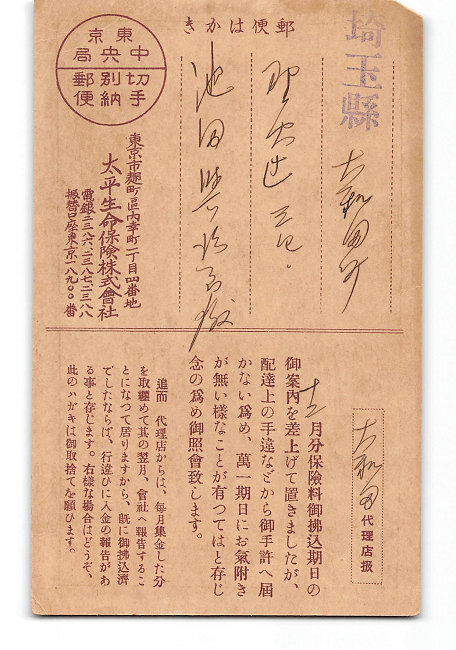 郵便はかき
東京
中央局
切手別納郵便
埼玉縣
大和田町
東京市麹町區内幸町一丁目四番地
太平生命保險株式會社
電銀二三八六・二三八七・二三八八
振替口座東京一八九〇〇番
大和田代理店扱
十二月分保險料御拂込期日の
御案内を差上げて置きましたが、
配達上の手違などから御手許へ屆
かない爲め、萬一期日にお氣附き
が無い樣なことが有つてはと存じ
念の爲め御照會致します。
追而 代理店からは、毎月集金した分
を取纒めて其の翌月、會社へ報告するこ
とになつて居りますから、既に御拂込濟
でしたならば、行違ひに入金の報告があ
る事と存じます。右樣な場合はどうぞ、
此のハガキは御取捨てを願ひます。